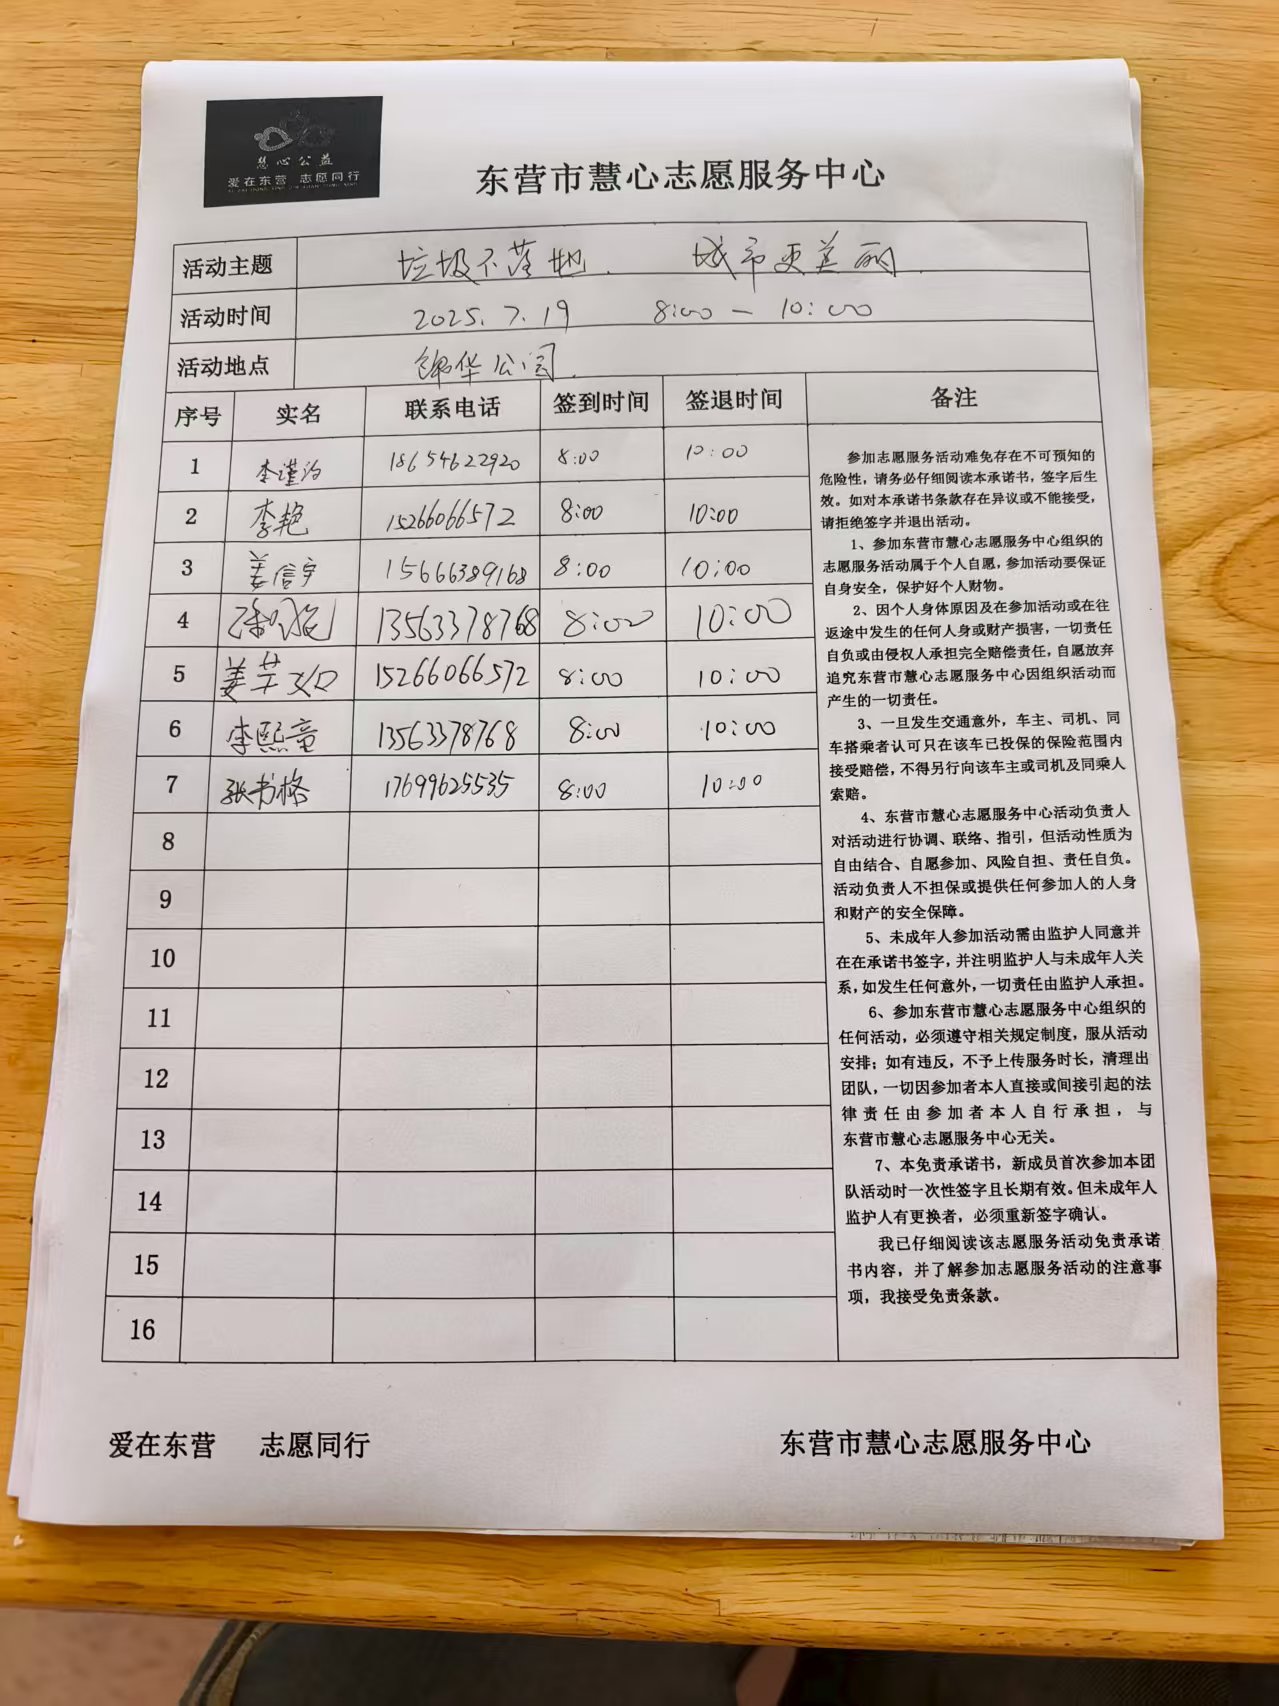 慧心公益
爱在东营 志愿同行
东营市慧心志愿服务中心
活动主题 垃圾不落地. 城市更美丽.
活动时间 2025.7.19 8:00 — 10:00
活动地点 锦华公司.
序号 实名 联系电话 签到时间 签退时间 备注
1 李谨汐 18654622920 8:00 10:00
2 李艳 15266066572 8:00 10:00
3 姜信宇 15666389168 8:00 10:00
4 13563378768 8:00 10:00
5 姜芊 15266066572 8:00 10:00
6 李熙童 13563378768 8:00 10:00
7 张书格 17699625535 8:00 10:00
8
9
10
11
12
13
14
15
16
参加志愿服务活动难免存在不可预知的
危险性，请务必仔细阅读本承诺书，签字后生
效。如对本承诺书条款存在异议或不能接受，
请拒绝签字并退出活动。
1、参加东营市慧心志愿服务中心组织的
志愿服务活动属于个人自愿，参加活动要保证
自身安全，保护好个人财物。
2、因个人身体原因及在参加活动或在往
返途中发生的任何人身或财产损害，一切责任
自负或由侵权人承担完全赔偿责任，自愿放弃
追究东营市慧心志愿服务中心因组织活动而
产生的一切责任。
3、一旦发生交通意外，车主、司机、同
车搭乘者认可只在该车已投保的保险范围内
接受赔偿，不得另行向该车主或司机及同乘人
索赔。
4、东营市慧心志愿服务中心活动负责人
对活动进行协调、联络、指引，但活动性质为
自由结合、自愿参加、风险自担、责任自负。
活动负责人不担保或提供任何参加人的人身
和财产的安全保障。
5、未成年人参加活动需由监护人同意并
在在承诺书签字，并注明监护人与未成年人关
系，如发生任何意外，一切责任由监护人承担。
6、参加东营市慧心志愿服务中心组织的
任何活动，必须遵守相关规定制度，服从活动
安排；如有违反，不予上传服务时长，清理出
团队，一切因参加者本人直接或间接引起的法
律责任由参加者本人自行承担，与
东营市慧心志愿服务中心无关。
7、本免责承诺书，新成员首次参加本团
队活动时一次性签字且长期有效。但未成年人
监护人有更换者，必须重新签字确认。
我已仔细阅读该志愿服务活动免责承诺
书内容，并了解参加志愿服务活动的注意事
项，我接受免责条款。
爱在东营 志愿同行 东营市慧心志愿服务中心